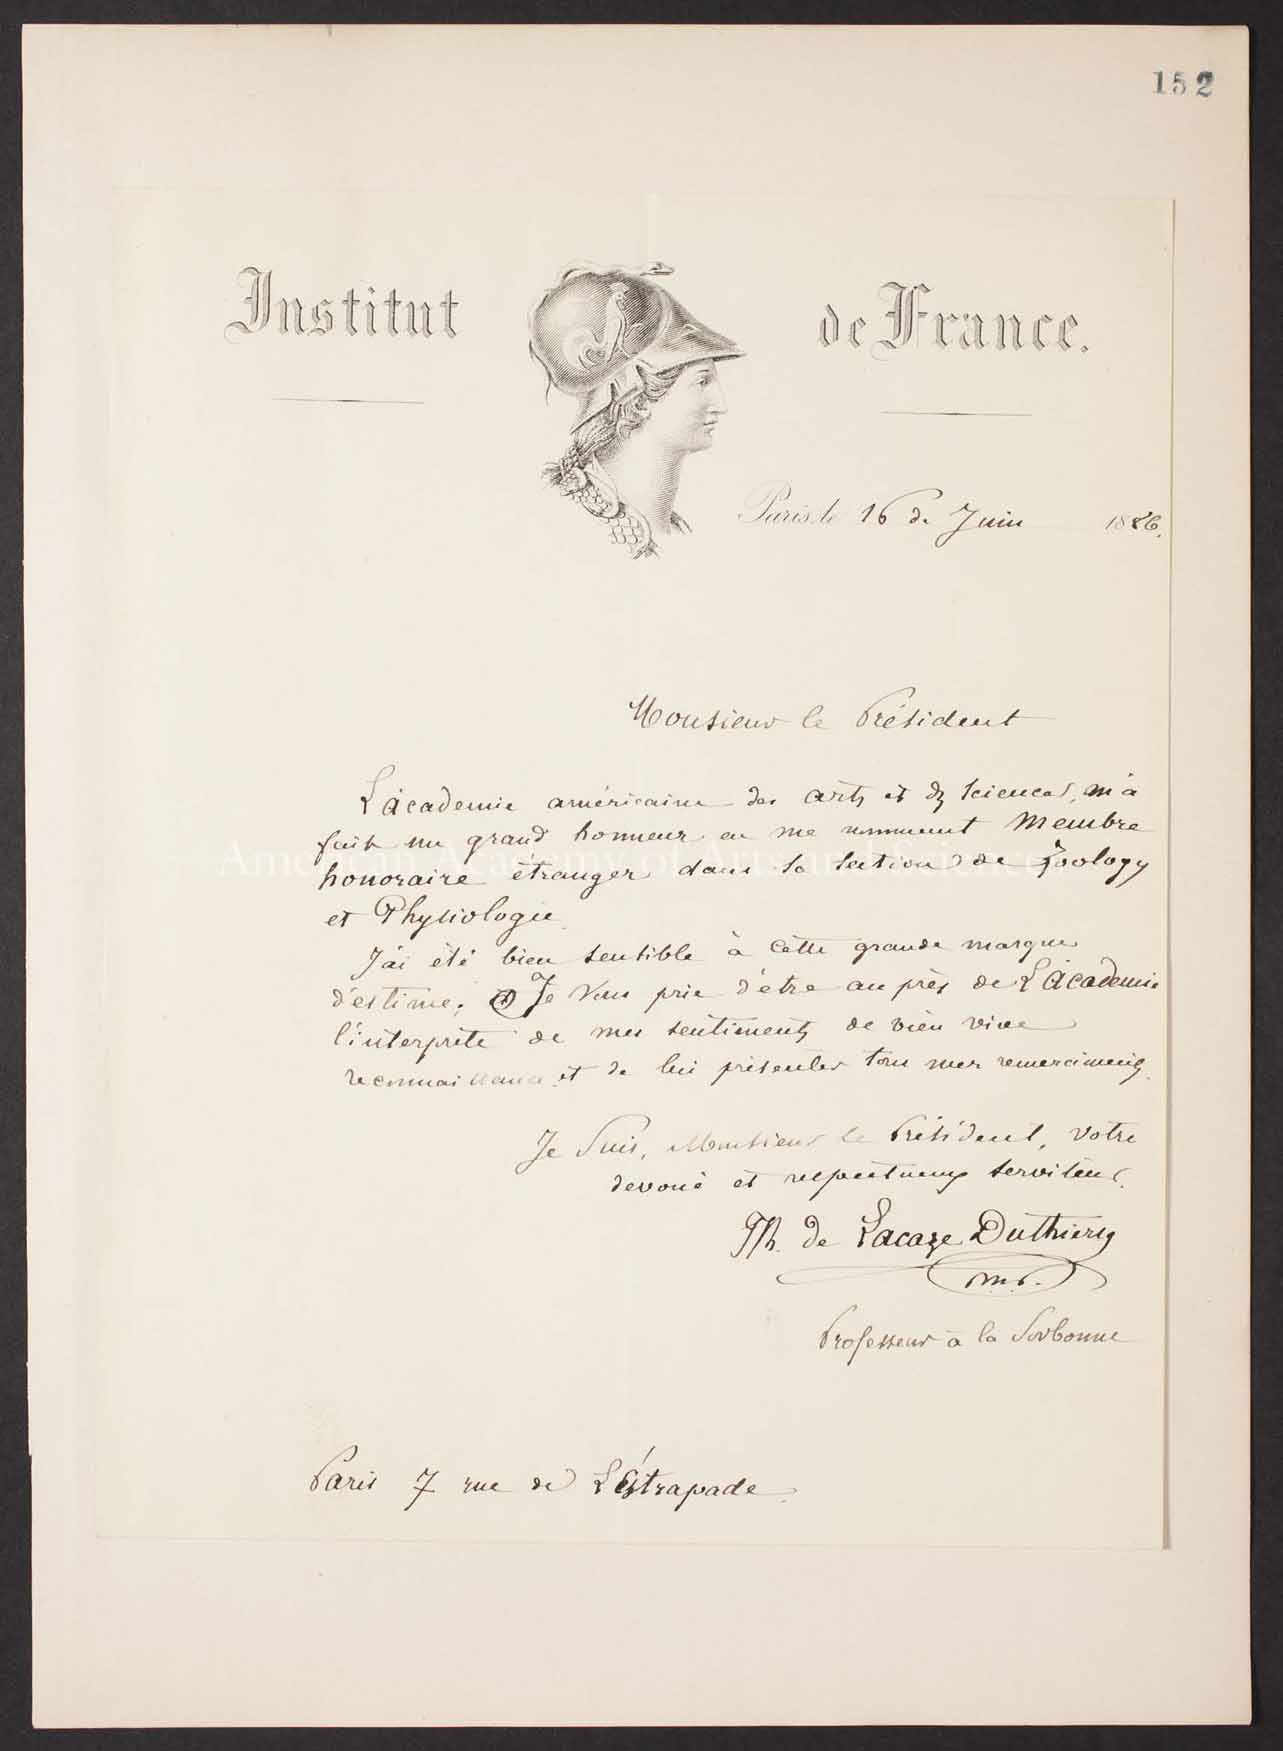 152
Institut de France.
Paris, le 16 de Juin 1886.
Monsieur le Président
L'académie américaine des arts et des sciences, m'a
fait un grand honneur en me nommant Membre
American Academy of Arts and Sciences
honoraire étranger dans la section de Zoology
et Physiologie.
J'ai été bien sensible à cette grande marque
d'estime. Je vous prie d'être au près de L'académie
l'interprète de mes sentiments de bien vive
reconnaissance et de lui présenter tous mes remerciments.
Je suis, Monsieur le Président, votre
devoué et respectueux serviteur.
Th. de Lacaze Duthiers
m. p.
Professeur à la Sorbonne
Paris 7 rue de L'Estrapade.